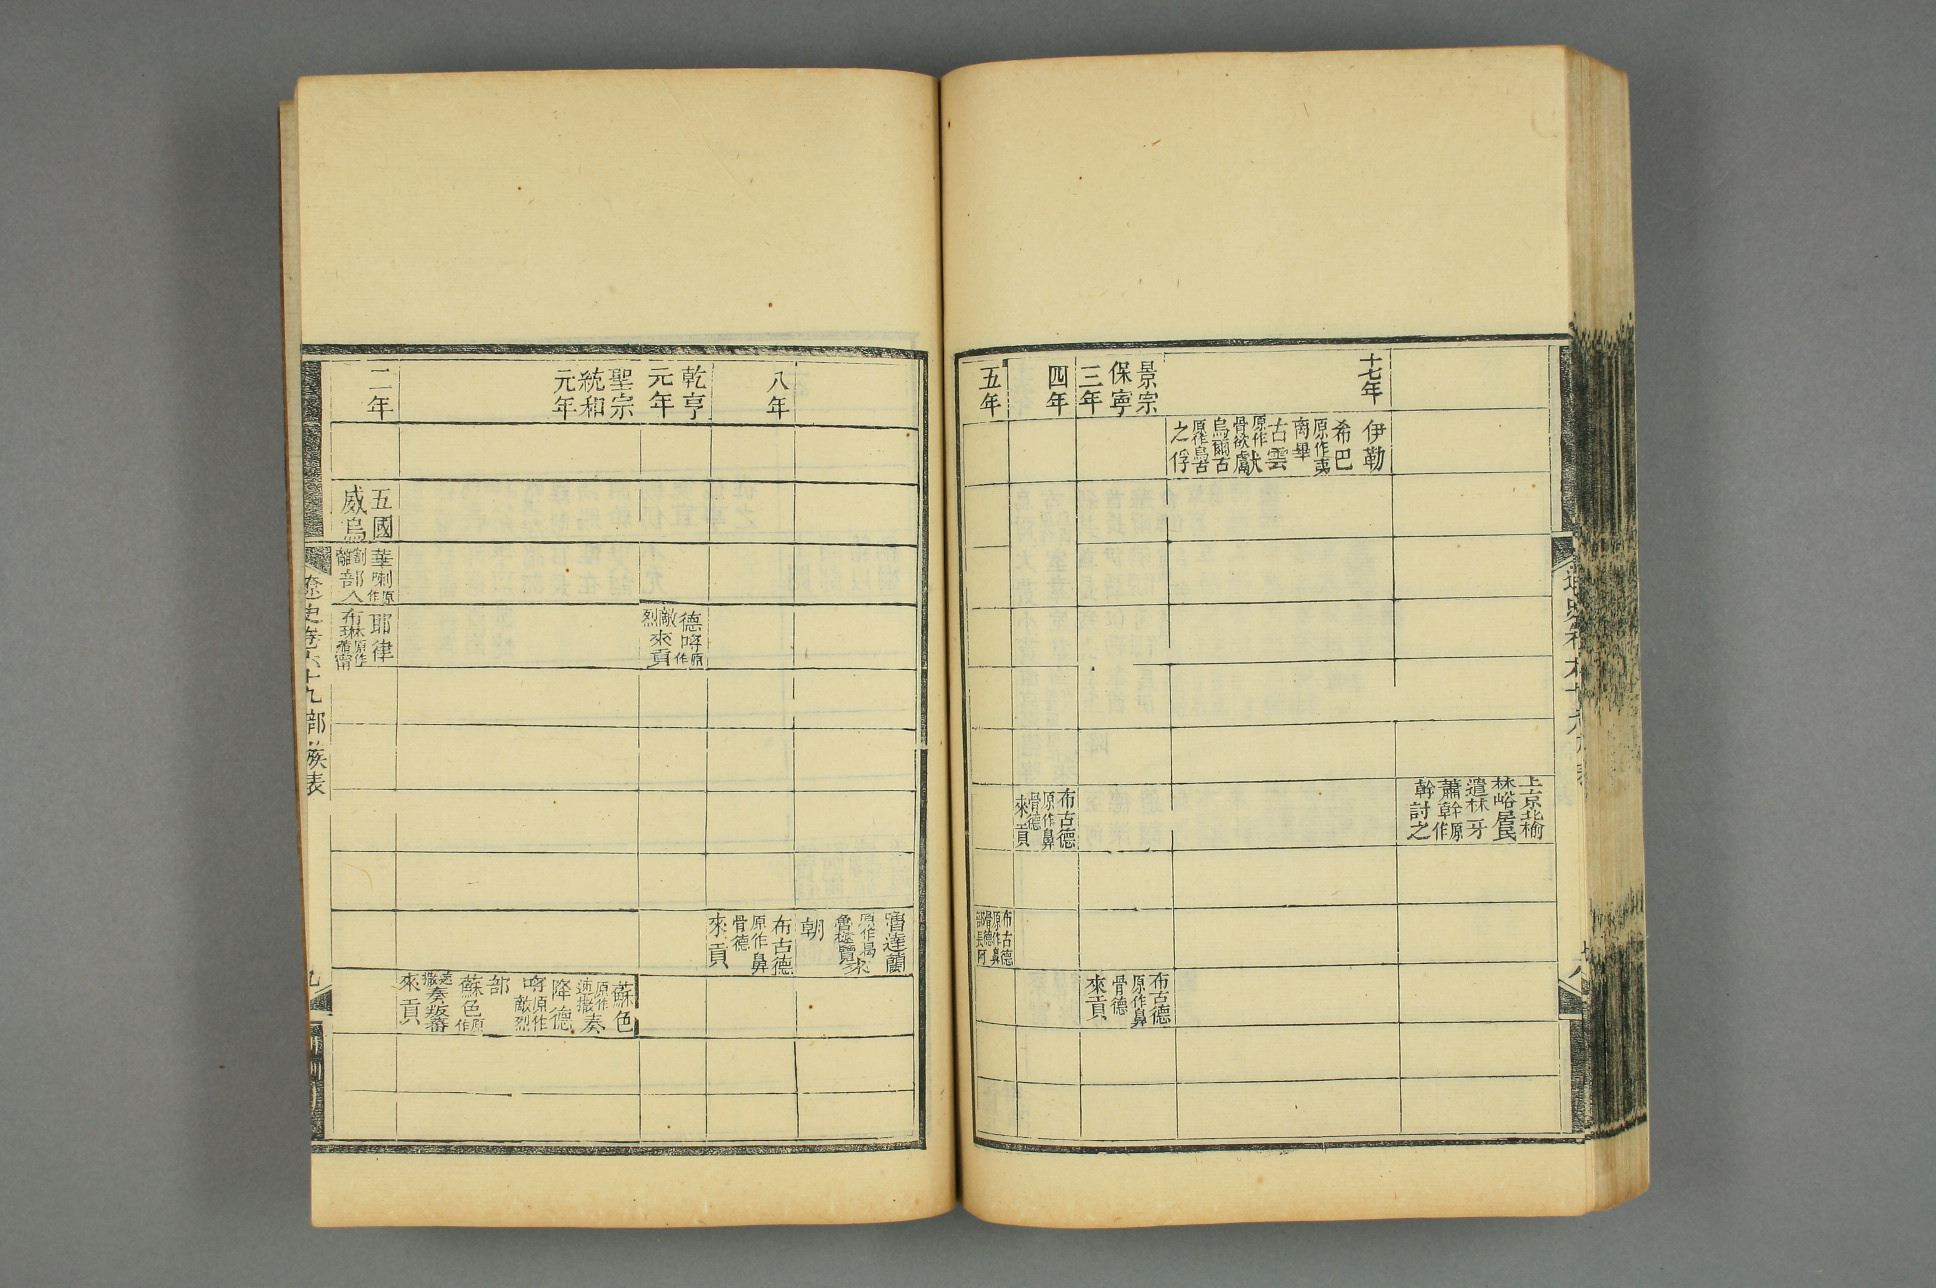 上京北榆
林峪居民
遣林牙
蕭幹原作
幹討之
十七年
伊勒
希巴
原作夷
离畢
古雲
原作伏
骨欲獻
烏爾古
原作烏古
之俘
景宗
保寧
三年
布古德
原作鼻
骨德
來貢
四年
布古德
原作鼻
骨德
來貢
五年
布古德
原作鼻
骨德
部長阿
嚕達蘭
原作曷
魯
來
朝
八年
布古德
原作鼻
骨德
來貢
乾亨
元年
德哷原作
敵烈
來貢
聖宗
統和
元年
蘇色
原作
速撒
奏
降德
哷原作
敵烈
部
蘇色原作
速撒
奏叛蕃
來貢
二年
五國
威烏
華喇原作
劃離
部人
耶律
布琳原作
蒲甯
遼史卷六十九 部族表
九